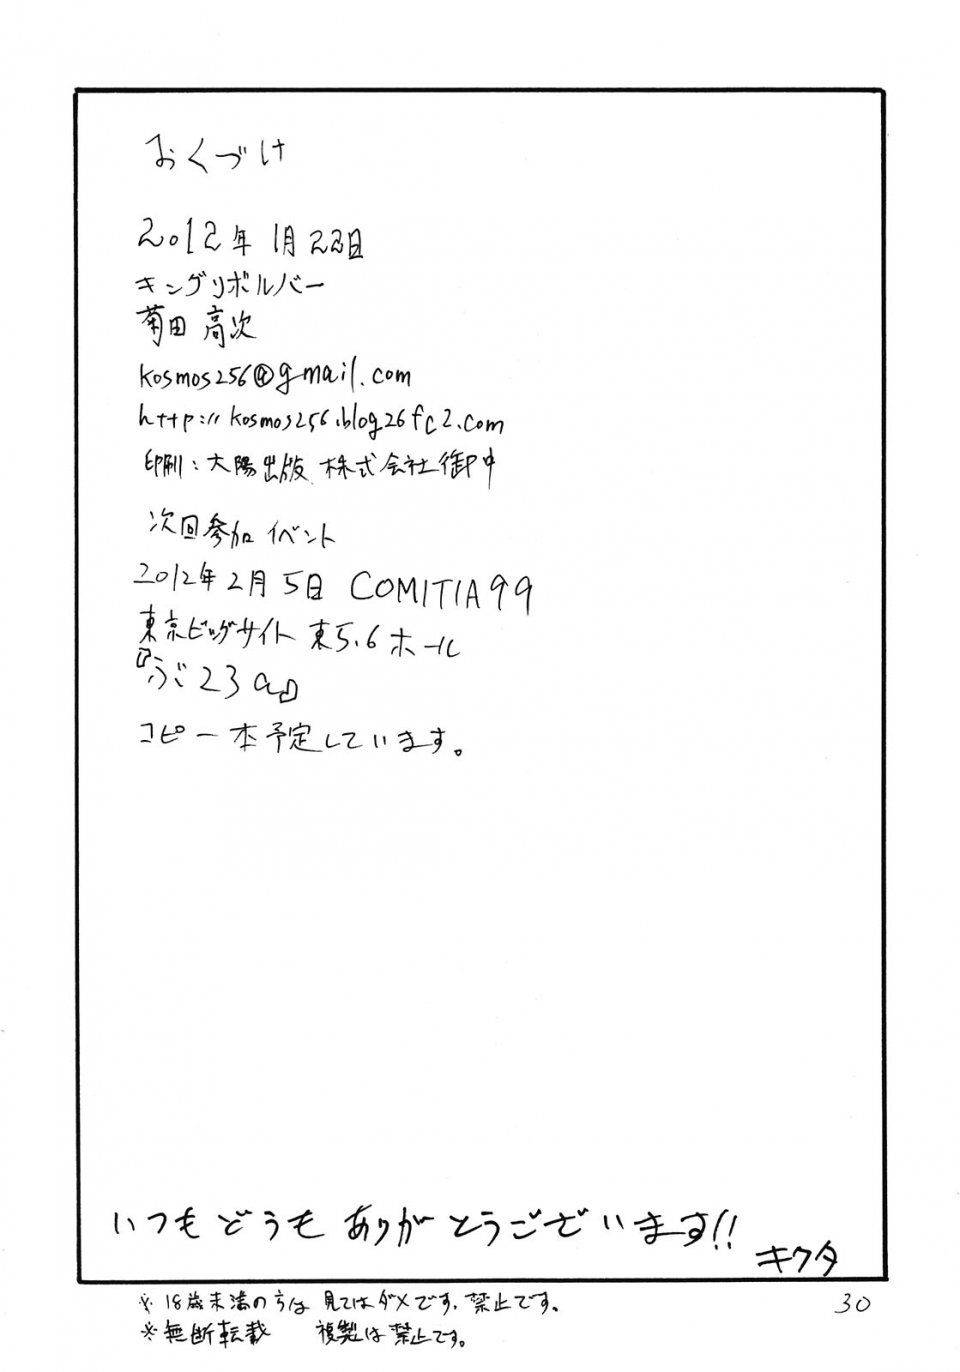 おくづけ
2012年 1月22日
キングリボルバー
菊田 高次
kosmos256@gmail.com
http://kosmos256.blog26fc2.com
印刷：大陽出版 株式会社御中
次回参加 イベント
2012年2月5日 COMITIA99
東京ビッグサイト 東5.6 ホール
『ぶ23a』
コピー本予定しています。
いつもどうも ありがとうございます!!
キクタ
※18歳未満の方は 見てはダメです、禁止です。
※無断転載 複製は禁止です。
30